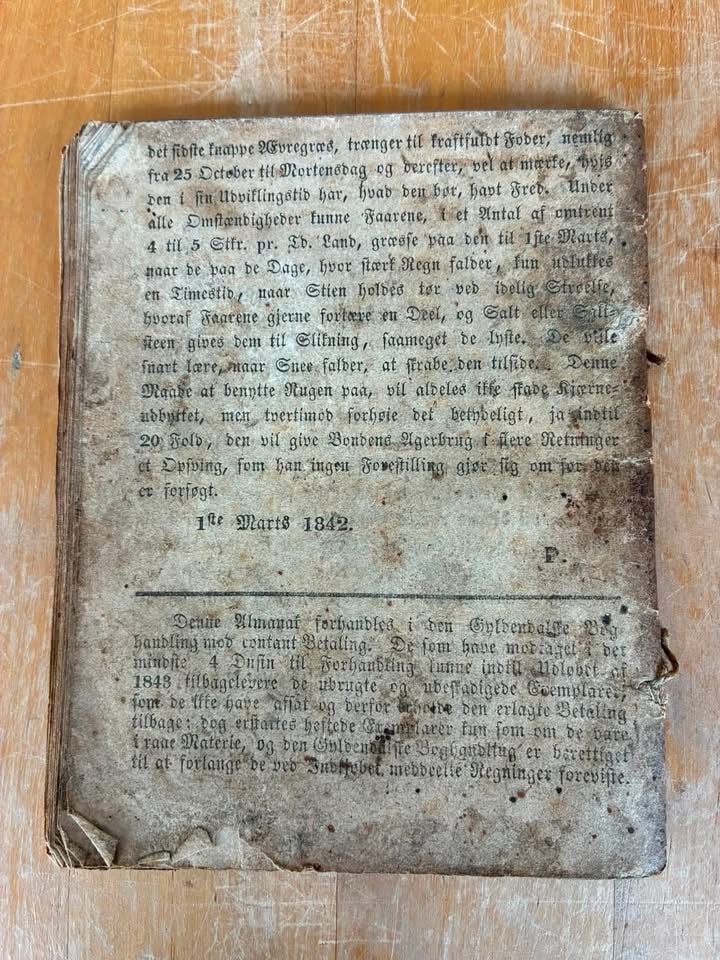 det sidste knappe Ævregræs, trænger til kraftfuldt Foder, nemlig
fra 25 October til Mortensdag og derefter, vel at mærke, hvis
den i sin Udviklingstid har, hvad den bør, havt Fred. Under
alle Omstændigheder kunne Faarene, i et Antal af omtrent
4 til 5 Stkr. pr. Td. Land, græsse paa den til 1ste Marts,
naar de paa de Dage, hvor stærk Regn falder, kun udlukkes
en Timestid, naar Stien holdes tør ved idelig Strøelse,
hvoraf Faarene gjerne fortære en Deel, og Salt eller Salt-
steen gives dem til Slikning, saameget de lyste. De ville
snart lære, naar Snee falder, at skrabe den tilside. Denne
Maade at benytte Rugen paa, vil aldeles ikke skade Kjærne-
udbyttet, men tvertimod forhøie det betydeligt, ja indtil
20 Fold, den vil give Bondens Agerbrug i flere Retninger
et Opsving, som han ingen Forestilling gjør sig om før den
er forsøgt.
1ste Marts 1842.
P.
Denne Almanak forhandles i den Gyldendalske Bog
handling mod contant Betaling. De som have modtaget i det
mindste 4 Dusin til Forhandling kunne indtil Udløbet af
1843 tilbagelevere de ubrugte og ubeskadigede Exemplarer,
som de ikke have afsat og derfor erholde den erlagte Betaling
tilbage; dog erstattes heftede Exemplarer kun som om de vare
i raae Materie, og den Gyldendalske Boghandling er berettiget
til at forlange de ved Indkjøbet meddeelte Regninger foreviste.